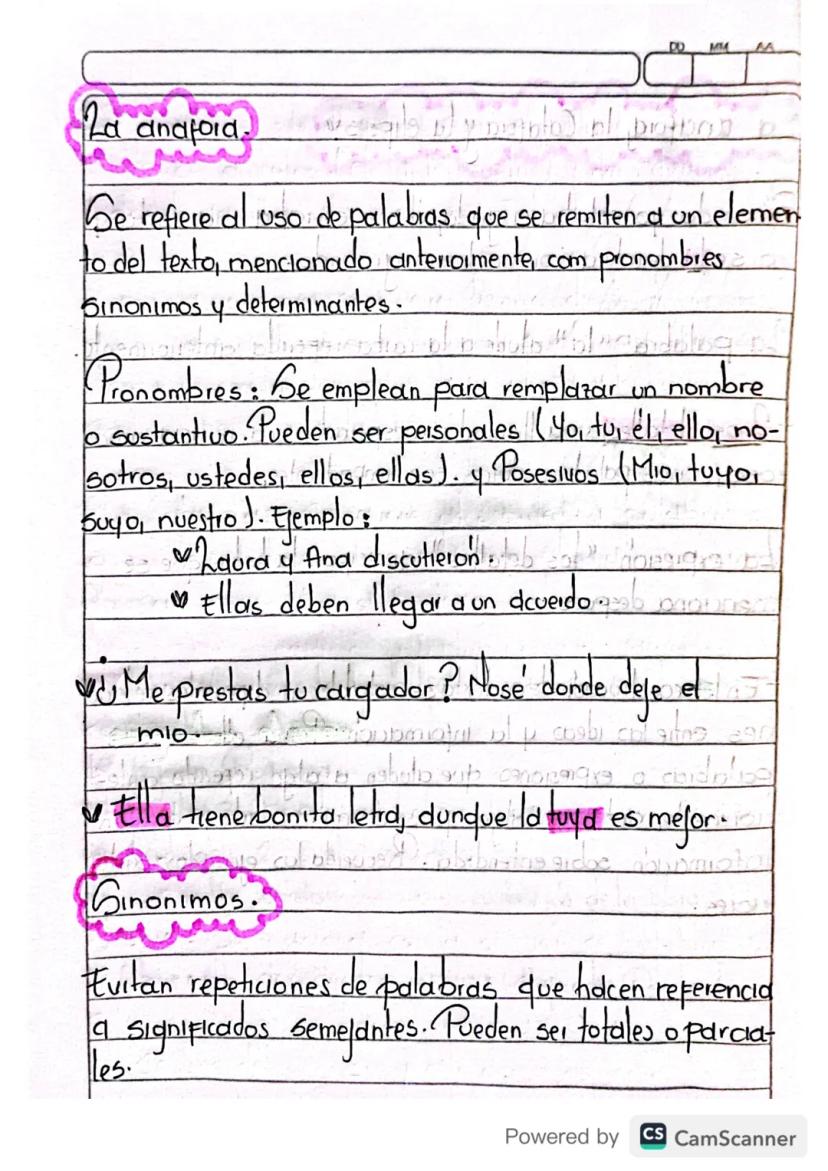 DD MM AA
La anafora.
Se refiere al uso de palabras que se remiten a un elemen
to del texto, mencionado anteriormente, com pronombres
sinonimos y determinantes.
Pronombres: Se emplean para remplazar un nombre
o sustantivo. Pueden ser personales (Yo, tu, él, ella, no-
sotros, ustedes, ellos, ellas). y Posesivos (Mio, tuyo,
suyo, nuestro). Ejemplo:
Laura y Ana discutierón.
Ellas deben llegar a un acuerdo
¿Me prestas tu cargador? Nosé donde deje el
mio.
Ella tiene bonita letra, aunque la tuya es mejor.
Sinonimos.
Evitan repeticiones de palabras que hacen referencia
a significados semejantes. Pueden ser totales o parcia-
les.
Powered by CS CamScanner